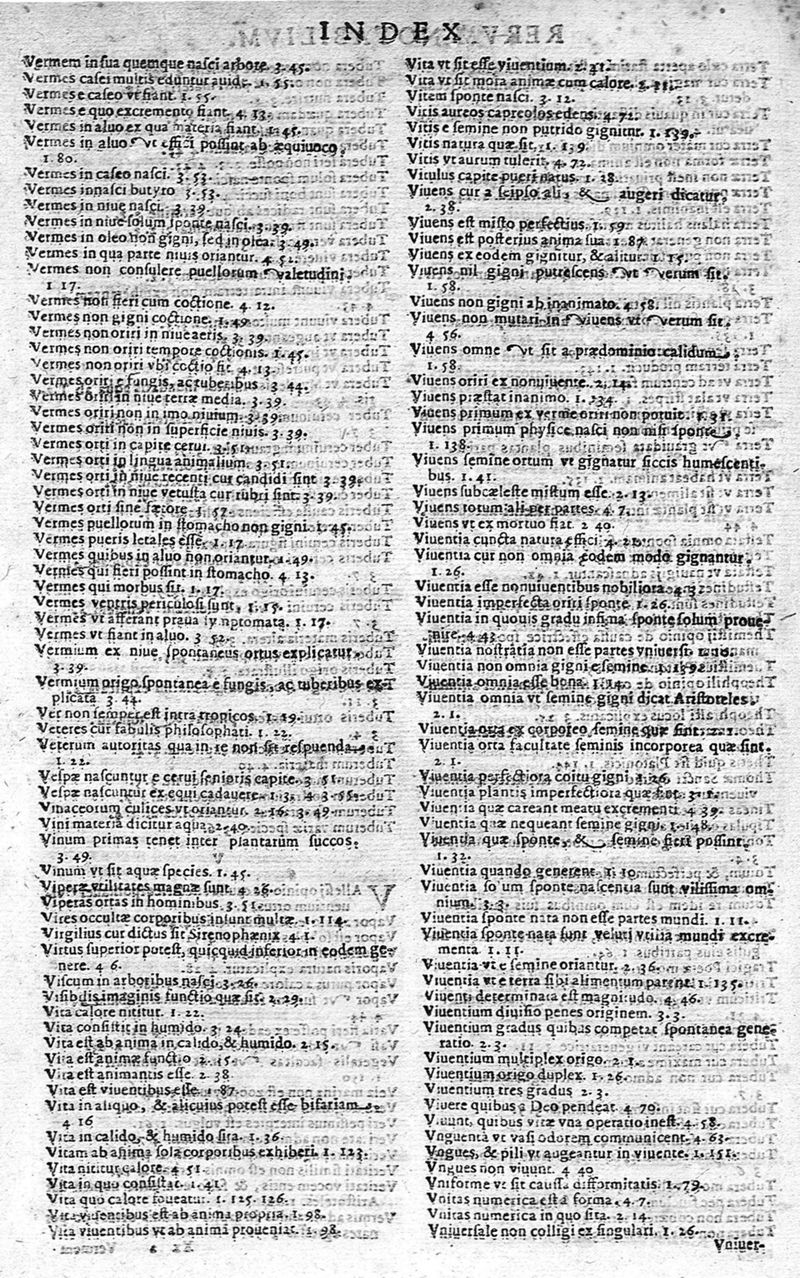 INDEX
Vermem in sua quemque nasci arbore. 3. 45.
Vermes casei multis eduntur auide. 1. 55.
Vermes e caseo vt fiant. 1. 55.
Vermes e quo excremento fiant. 4. 13.
Vermes in aluo ex qua materia fiant. 1. 45.
Vermes in aluo vt effici possint ab æquiuoco.
1. 80.
Vermes in caseo nasci. 3. 53.
Vermes innasci butyro 3. 53.
Vermes in niue nasci. 3. 39.
Vermes in niue solum sponte nasci. 3. 39.
Vermes in oleo non gigni, sed in olea. 3. 49.
Vermes in qua parte niuis oriantur. 4. 52.
Vermes non consulere puellorum valetudini.
1 17.
Vermes non fieri cum coctione. 4. 12.
Vermes non gigni coctione. 1. 49
Vermes non oriri in niue aeris. 3. 39.
Vermes non oriri tempore coctionis. 1. 45.
Vermes non oriri vbi coctio sit 4. 13.
Vermes oriri e fungis, ac tuberibus 3. 44.
Vermes oriri in niue terræ media. 3. 39.
Vermes oriri non in imo niuium. 3. 39.
Vermes oriri non in superficie niuis. 3. 39.
Vermes orti in capite cerui. 3. 51.
Vermes orti in lingua animalium. 3. 51.
Vermes orti in niue recenti cur candidi sint 3. 39.
Vermes orti in niue vetusta cur rubri sint. 3. 39.
Vermes orti sine fætore. 1. 57.
Vermes puellorum in stomacho non gigni. 1. 45.
Vermes pueris letales esse. 1. 17
Vermes quibus in aluo non oriantur. 1. 49.
Vermes qui fieri possint in stomacho. 4 13.
Vermes qui morbus sit. 1. 17.
Vermes ventris periculosi sunt. 1. 15.
Vermes vt afferant praua symptomata. 1. 17.
Vermes vt fiant in aluo. 3 52.
Vermium ex niue spontaneus ortus explicatur.
3. 39.
Vermium origo spontanea e fungis, ac tuberibus ex-
plicata 3. 44.
Ver non semper est intra tropicos. 1. 19.
Veteres cur fabulis philosophati. 1. 22.
Veterum autoritas qua in re non sit respuenda.
1. 22.
Vespæ nascuntur e cerui senioris capite. 3. 51.
Vespæ nascuntur ex equi cadauere. 1. 3. 4. 3. 55.
Vinaceorum culices vt oriantur. 2. 16. 3. 49.
Vini materia dicitur aqua. 2. 49.
Vinum primas tenet inter plantarum succos.
3. 49.
Vinum vt sit aquæ species. 1. 45.
Viperæ vtilitates magnæ sunt. 4 28.
Viperas ortas in hominibus 3. 51.
Vires occultæ corporibus insunt multæ. 1. 114.
Virgilius cur dictus sit Sirenophænix 4. 1.
Virtus superior potest, quicquid inferior in eodem ge-
nere. 4 6.
Viscum in arboribus nasci 3. 26.
Visibilis imaginis functio quæ sit. 2. 29.
Vita calore nititur. 1. 22.
Vita consistit in humido. 3. 24.
Vita est ab anima in calido, & humido. 2. 15.
Vita est animæ functio 2. 15.
Vita est animantis esse. 2. 38.
Vita est viuentibus esse. 1. 87.
Vita in aliquo, & alicuius potest esse bifariam.
4 16
Vita in calido, & humido sita. 1. 36.
Vitam ab anima sola corporibus exhiberi. 1. 123.
Vita nititur calore. 4. 51.
Vita in quo consistat. 1. 41.
Vita quo calore foueatur. 1. 125. 126.
Vita viuentibus est ab anima propria. 1. 98.
Vita viuentibus vt ab anima proueniat. 1. 98.
Vita vt sit esse viuentium. 2. 21.
Vita vt sit mora animæ cum calore.
Vitem sponte nasci. 3. 12.
Vitis aureos capreolos edens. 4. 72.
Vitis e semine non putrido gignitur. 1. 139.
Vitis natura quæ sit. 1. 139.
Vitis vt aurum tulerit. 4. 72.
Vitulus capite pueri natus. 1. 28.
Viuens cur a seipso ali, & augeri dicatur.
2. 38.
Viuens est misto perfectius. 1. 59.
Viuens est posterius anima sua. 1. 87.
Viuens ex eodem gignitur, & alitur. 1. 15.
Viuens nil gigni putrescens vt verum sit.
1. 58.
Viuens non gigni ab inanimato. 4. 58.
Viuens non mutari in viuens vt verum sit.
4 56.
Viuens omne vt sit a prædominio calidum.
1. 58.
Viuens oriri ex non viuente. 2. 14.
Viuens præstat inanimo. 1. 134.
Viuens primum ex verme oriri non potuit. 1. 31.
Viuens primum physice nasci non nisi sponte.
1. 138.
Viuens semine ortum vt gignatur siccis humescenti-
bus. 1. 41.
Viuens subcæleste mistum esse. 2. 13.
Viuens totum ali per partes. 4. 7.
Viuens vt ex mortuo fiat. 2 40.
Viuentia cuncta natura effici. 4. 21.
Viuentia cur non omnia eodem modo gignantur.
1. 26.
Viuentia esse non viuentibus nobiliora. 4. 3.
Viuentia imperfecta oriri sponte. 1. 26.
Viuentia in quouis gradu infima sponte solum proue-
niue. 4. 43.
Viuentia nostratia non esse partes vniuersi.
Viuentia non omnia gigni e semine. 1. 139.
Viuentia omnia esse bona. 1. 24.
Viuentia omnia vt semine gigni dicat Aristoteles.
2. 1.
Viuentia orta ex corporeo semine quæ sint.
Viuentia orta facultate seminis incorporea quæ sint.
2. 1.
Viuentia perfectiora coitu gigni. 1. 26.
Viuentia plantis imperfectiora quæ
Viuentia quæ careant meatu excrementi 4 39.
Viuentia quæ nequeant semine gigni. 1. 148.
Viuentia quæ sponte, & semine fieri possint.
1. 32.
Viuentia quando generent. 2. 10.
Viuentia solum sponte nascentia sunt vilissima om-
nium. 3. 3.
Viuentia sponte nata non esse partes mundi. 1. 11.
Viuentia sponte nata sunt veluti vtilia mundi excre-
menta. 1. 11.
Viuentia vt e semine oriantur. 2. 36.
Viuentia vt e terra sibi alimentum parent. 1. 135.
Viuenti determinata est magnitudo. 4. 46.
Viuentium diuisio penes originem. 3. 3.
Viuentium gradus quibus competat spontanea gene-
ratio. 2. 3.
Viuentium multiplex origo. 2. 1.
Viuentium origo duplex. 1. 26.
Viuentium tres gradus 2. 3.
Viuere quibus a Deo pendeat. 4. 70.
Viuunt, quibus vitæ vna operatio inest. 4. 58.
Vnguenta vt vasi odorem communicent. 4. 63.
Vngues, & pili vt augeantur in viuente. 1. 151.
Vngues non viuunt. 4 40
Vniforme vt sit caussa difformitatis. 1. 79.
Vnitas numerica est a forma. 4. 7.
Vnitas numerica in quo sita. 2. 14.
Vniuersale non colligi ex singulari. 1. 26.
Vniuer-